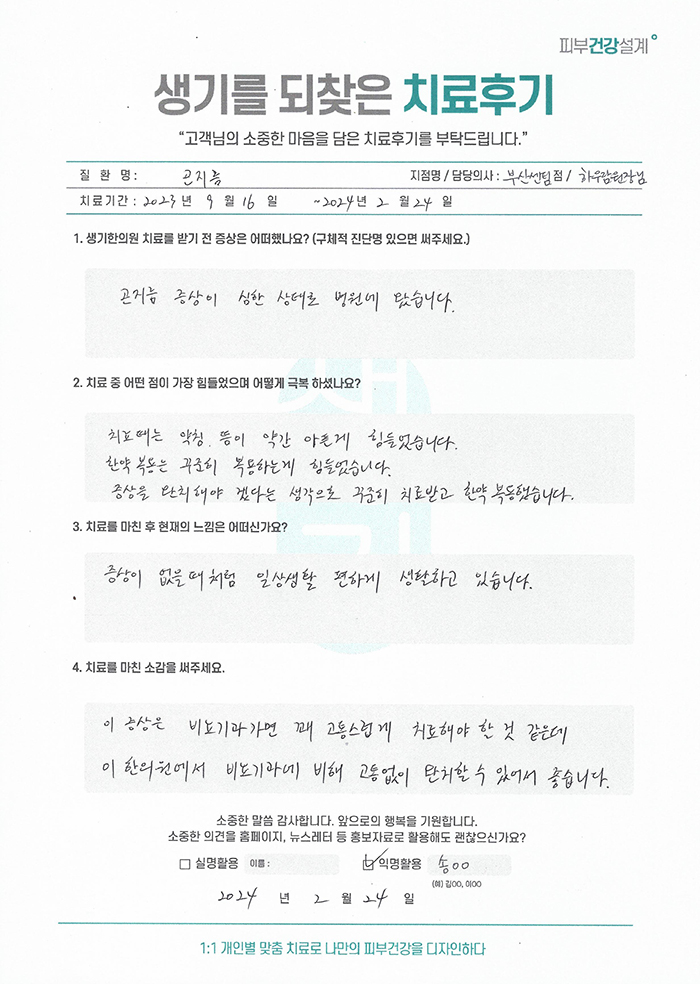 피부건강설계
생기를 되찾은 치료후기
“고객님의 소중한 마음을 담은 치료후기를 부탁드립니다.”
질 환 명 : 곤지름 지점명 / 담당의사 : 부산센텀점 / 하우람원장님
치료기간 : 2023년 9월 16일 ~2024년 2월 24일
1. 생기한의원 치료를 받기 전 증상은 어떠했나요? (구체적 진단명 있으면 써주세요.)
곤지름 증상이 심한 상태로 병원에 왔습니다.
2. 치료 중 어떤 점이 가장 힘들었으며 어떻게 극복 하셨나요?
치료때는 약침. 뜸이 약간 아픈게 힘들었습니다.
한약 복용는 꾸준히 복용하는게 힘들었습니다.
증상을 완치해야 겠다는 생각으로 꾸준히 치료받고 한약 복용했습니다.
3. 치료를 마친 후 현재의 느낌은 어떠신가요?
증상이 없을때처럼 일상생활 편하게 생활하고 있습니다.
4. 치료를 마친 소감을 써주세요.
이 증상은 비뇨기과가면 꽤 고통스럽게 치료해야 할 것 같은데
이 한의원에서 비뇨기과에 비해 고통없이 완치할 수 있어서 좋습니다.
소중한 말씀 감사합니다. 앞으로의 행복을 기원합니다.
소중한 의견을 홈페이지, 뉴스레터 등 홍보자료로 활용해도 괜찮으신가요?
실명활용 이름 : 익명활용 송OO
(예) 김OO, 이OO
2024 년 2 월 24 일
1:1 개인별 맞춤 치료로 나만의 피부건강을 디자인하다
생기